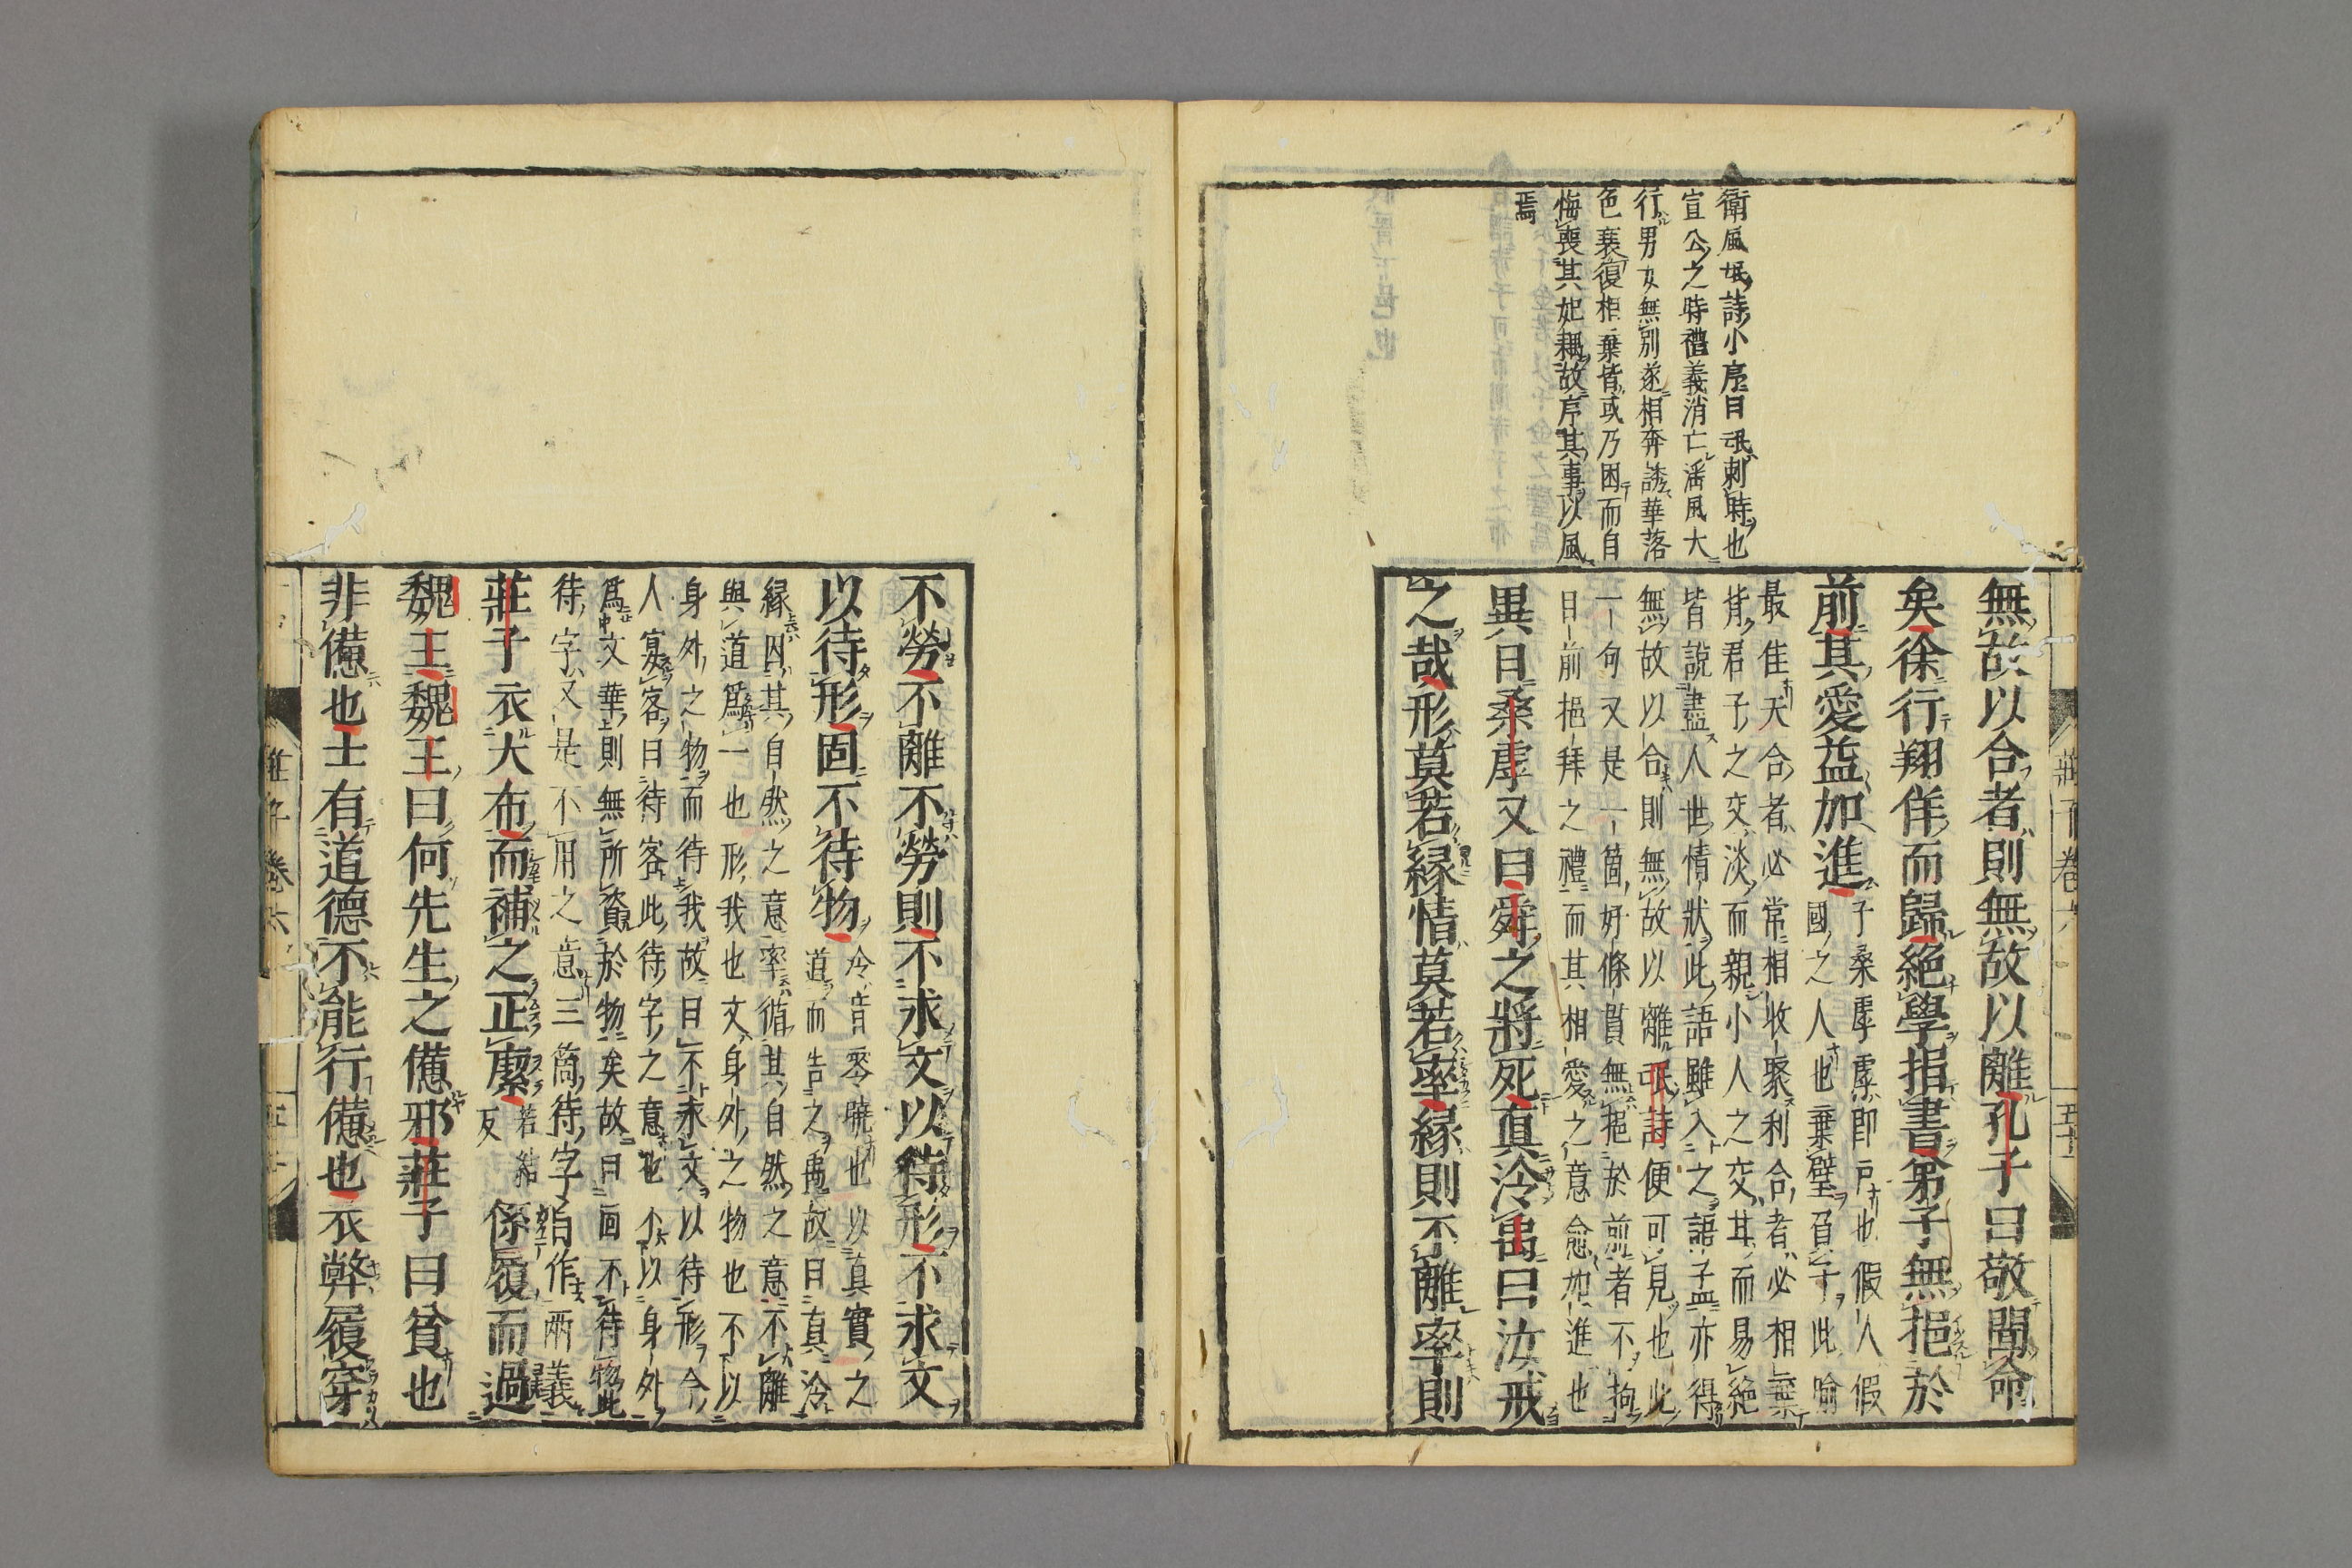 衛風氓詩小序曰氓刺時也
宣公之時禮義消亡淫風大
行男女無別遂相奔誘華落
色衰復相棄背或乃困而自
悔喪其妃耦故序其事以風
焉
無故以合者則無故以離孔子曰敬聞命
矣徐行翔佯而歸絕學捐書弟子無挹於
前其愛益加進
子桑雽雽即戶也假人假
國之人也棄璧負子此喻
最佳天合者必常相收聚利合者必相棄
背君子之交淡而親小人之交甘而易絕
皆說盡人世情狀此語雖入之語孟亦得
無故以合則無故以離氓詩便可見也此
一句又是一箇好條貫無挹於前者不拘
目前挹拜之禮而其相愛之意愈加進也
異日桑雽又曰舜之將死真泠禹曰汝戒
之哉形莫若緣情莫若率緣則不離率則
莊子卷六
五十
不勞不離不勞則不求文以待形不求文
以待形固不待物
泠音零曉也以真實之
道而告之禹故曰真泠
緣因其自然之意率循其自然之意不離
與道爲一也形我也文身外之物也不以
身外之物而待我故曰不求文以待形今
人宴客曰待客此待字之意也不以身外
爲文華則無所資於物矣故曰固不待物此
待字又是不用之意三箇待字自作兩義
莊子衣大布而補之正緳
苦結
反
係履而過
魏王魏王曰何先生之憊邪莊子曰貧也
非憊也士有道德不能行憊也衣弊履穿
莊子卷六